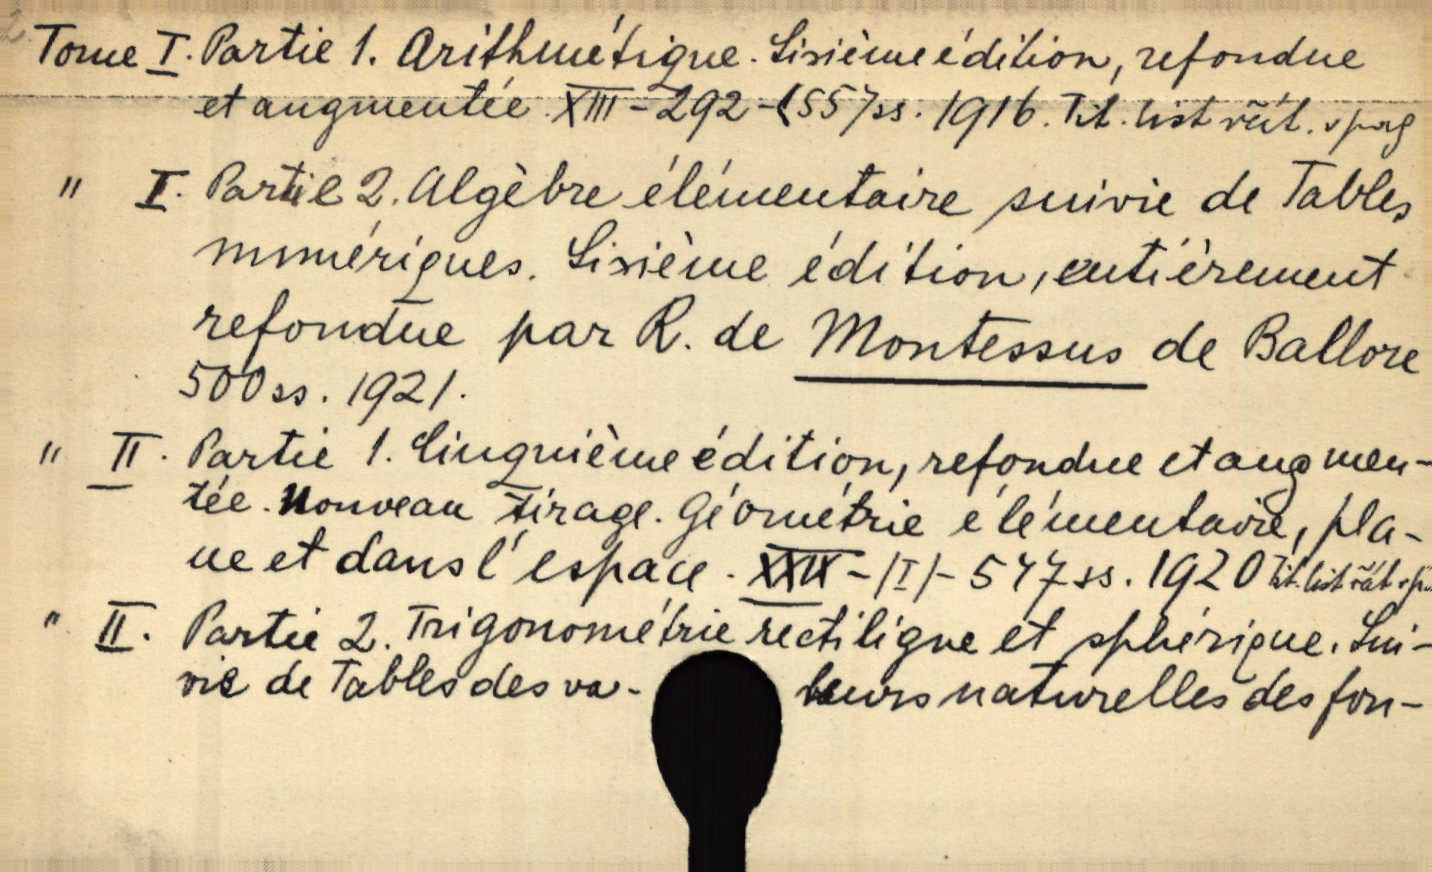 2.
Tome I. Partie 1. Arithmétique. Sixième édition, refondue
et augmentée. XIII - 292 - (55) ss. 1916. Tit. list väit. v pag
" I. Partie 2. Algèbre élémentaire suivie de Tables
numériques. Sixième édition, entièrement
refondue par R. de Montessus de Ballore
500 ss. 1921.
" II. Partie 1. Cinquième édition, refondue et augmen-
tée. Nouveau tirage. Géométrie élémentaire, pla-
ne et dans l'espace. - (I) - 547 ss. 1920 Tit. list
" II. Partie 2. Trigonométrie rectiligne et sphérique. Sui-
vie de Tables des va- leurs naturelles des fon-